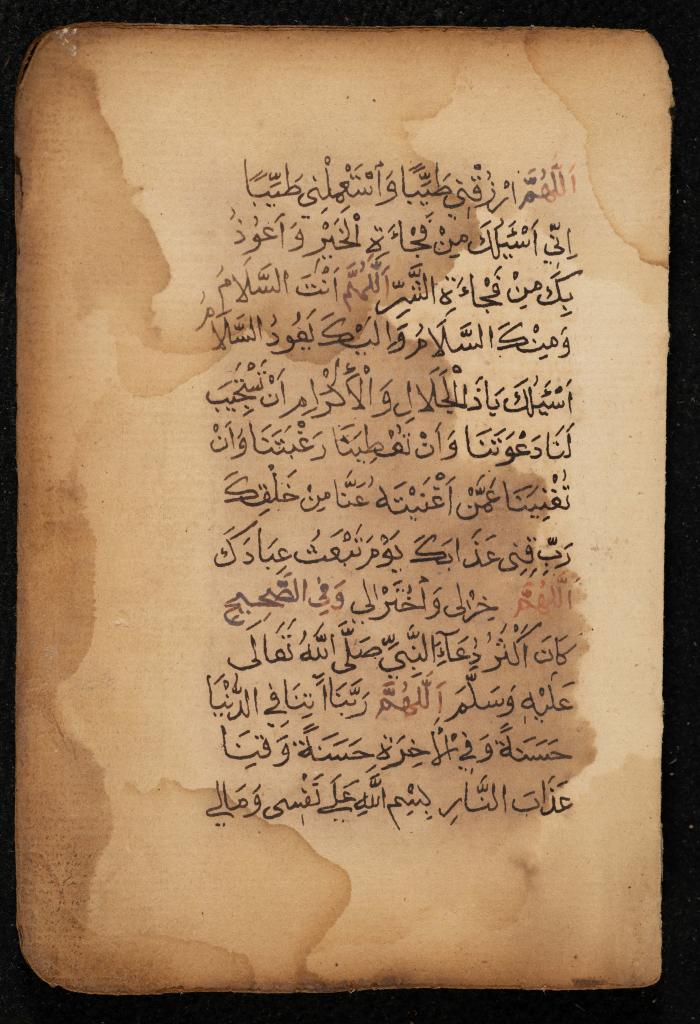 اَللّٰهُمَّ ارْزُقْنِي طَيِّبًا وَاسْتَعْمِلْنِي طَيِّبًا
اِنِّي اَسْئَلُكَ مِنْ فَجْاءَةِ الْخَيْرِ وَ اَعُوذُ
بِكَ مِنْ فَجْاءَةِ الشَّرِّ اَللّٰهُمَّ اَنْتَ السَّلَامُ
وَمِنْكَ السَّلَامُ وَاِلَيْكَ يَعُودُ السَّلَامُ
اَسْئَلُكَ يَاذَالْجَلَالِ وَ الْاَكْرَامِ اَنْ تَسْتَجِيبَ
لَنَا دَعْوَتَنَا وَاَنْ تُعْطِيَنَا رَغْبَتَنَا وَاَنْ
تُغْنِيَنَا عَمَّنْ اَغْنَيْتَهُ عَنَّا مِنْ خَلْقِكَ
رَبِّ قِنِى عَذَابَكَ يَوْمَ تَبْعَثُ عِبَادَكَ
اَللّٰهُمَّ خِرْلِى وَاخْتَرْلِي وَفِي الصَّحِيحِ
كَانَ اَكْثَرُ دُعَاءِ النَّبِيِّ صَلَّى اللّٰهُ تَعَالَى
عَلَيْهِ وَسَلَّمَ اَللّٰهُمَّ رَبَّنَا اٰتِنَا فِي الدُّنْيَا
حَسَنَةً وَفِي الْاٰخِرَةِ حَسَنَةً وَقِنَا
عَذَابَ النَّارِ بِسْمِ اللّٰهِ عَلَى نَفْسِى وَمَالِي